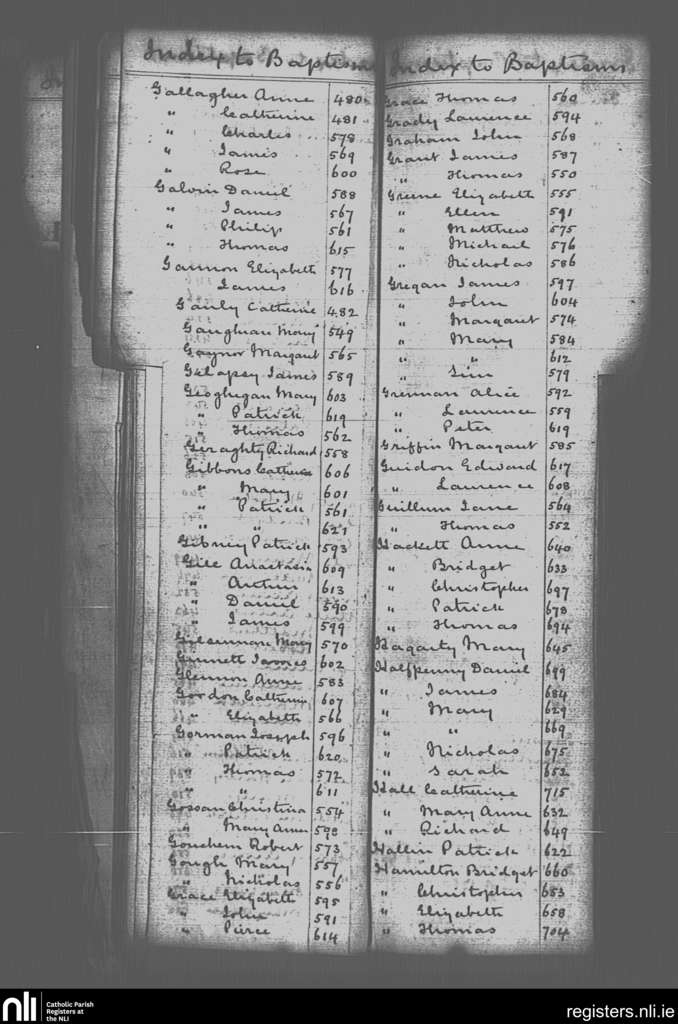 Index to Baptisms
Gallagher Anne 480
" Catherine 481
" Charles 578
" James 569
" Rose 600
Galvin Daniel 588
" James 567
" Philip 561
" Thomas 615
Gannon Elizabeth 577
" James 616
Gauly Catherine 482
Gaughran Mary 549
Gaynor Margaret 565
James 589
Geoghegan Mary 603
" Patrick 619
" Thomas 562
Geraghty Richard 558
Gibbons Catherine 606
" Mary 601
" Patrick 561
" " 621
Gibney Patrick 593
Gill Anastasia 609
" Arthur 613
" Daniel 590
" James 599
Gilsennan Mary 570
Ginnett James 602
Glennon Anne 583
Gordon Catherine 607
" Elizabeth 566
Gorman Joseph 596
" Patrick 620
" Thomas 572
" " 611
Gossan Christina 554
" Mary Anne 598
Robert 573
Gough Mary 557
" Nicholas 556
Grace Elizabeth 595
" John 591
" Pierce 614
Index to Baptisms
Grace Thomas 560
Grady Laurence 594
Graham John 568
Grant James 587
" Thomas 550
Greene Elizabeth 555
" Ellen 591
" Matthew 575
" Michael 576
" Nicholas 586
Gregan James 597
" John 604
" Margaret 574
" Mary 584
" " 612
" 579
Grennan Alice 592
" Laurence 559
" Peter 619
Griffin Margaret 585
Guidon Edward 617
" Laurence 608
Guillum Jane 564
" Thomas 552
Hackett Anne 640
" Bridget 633
" Christopher 697
" Patrick 678
" Thomas 694
Hagarty Mary 645
Halfpenny Daniel 699
" James 684
" Mary 629
" " 669
" Nicholas 675
" Sarah 652
Hall Catherine 715
" Mary Anne 632
" Richard 649
Hallin Patrick 622
Hamilton Bridget 660
" Christopher 653
" Elizabeth 658
" Thomas 704
nli
Catholic Parish
Registers at
the NLI
registers.nli.ie